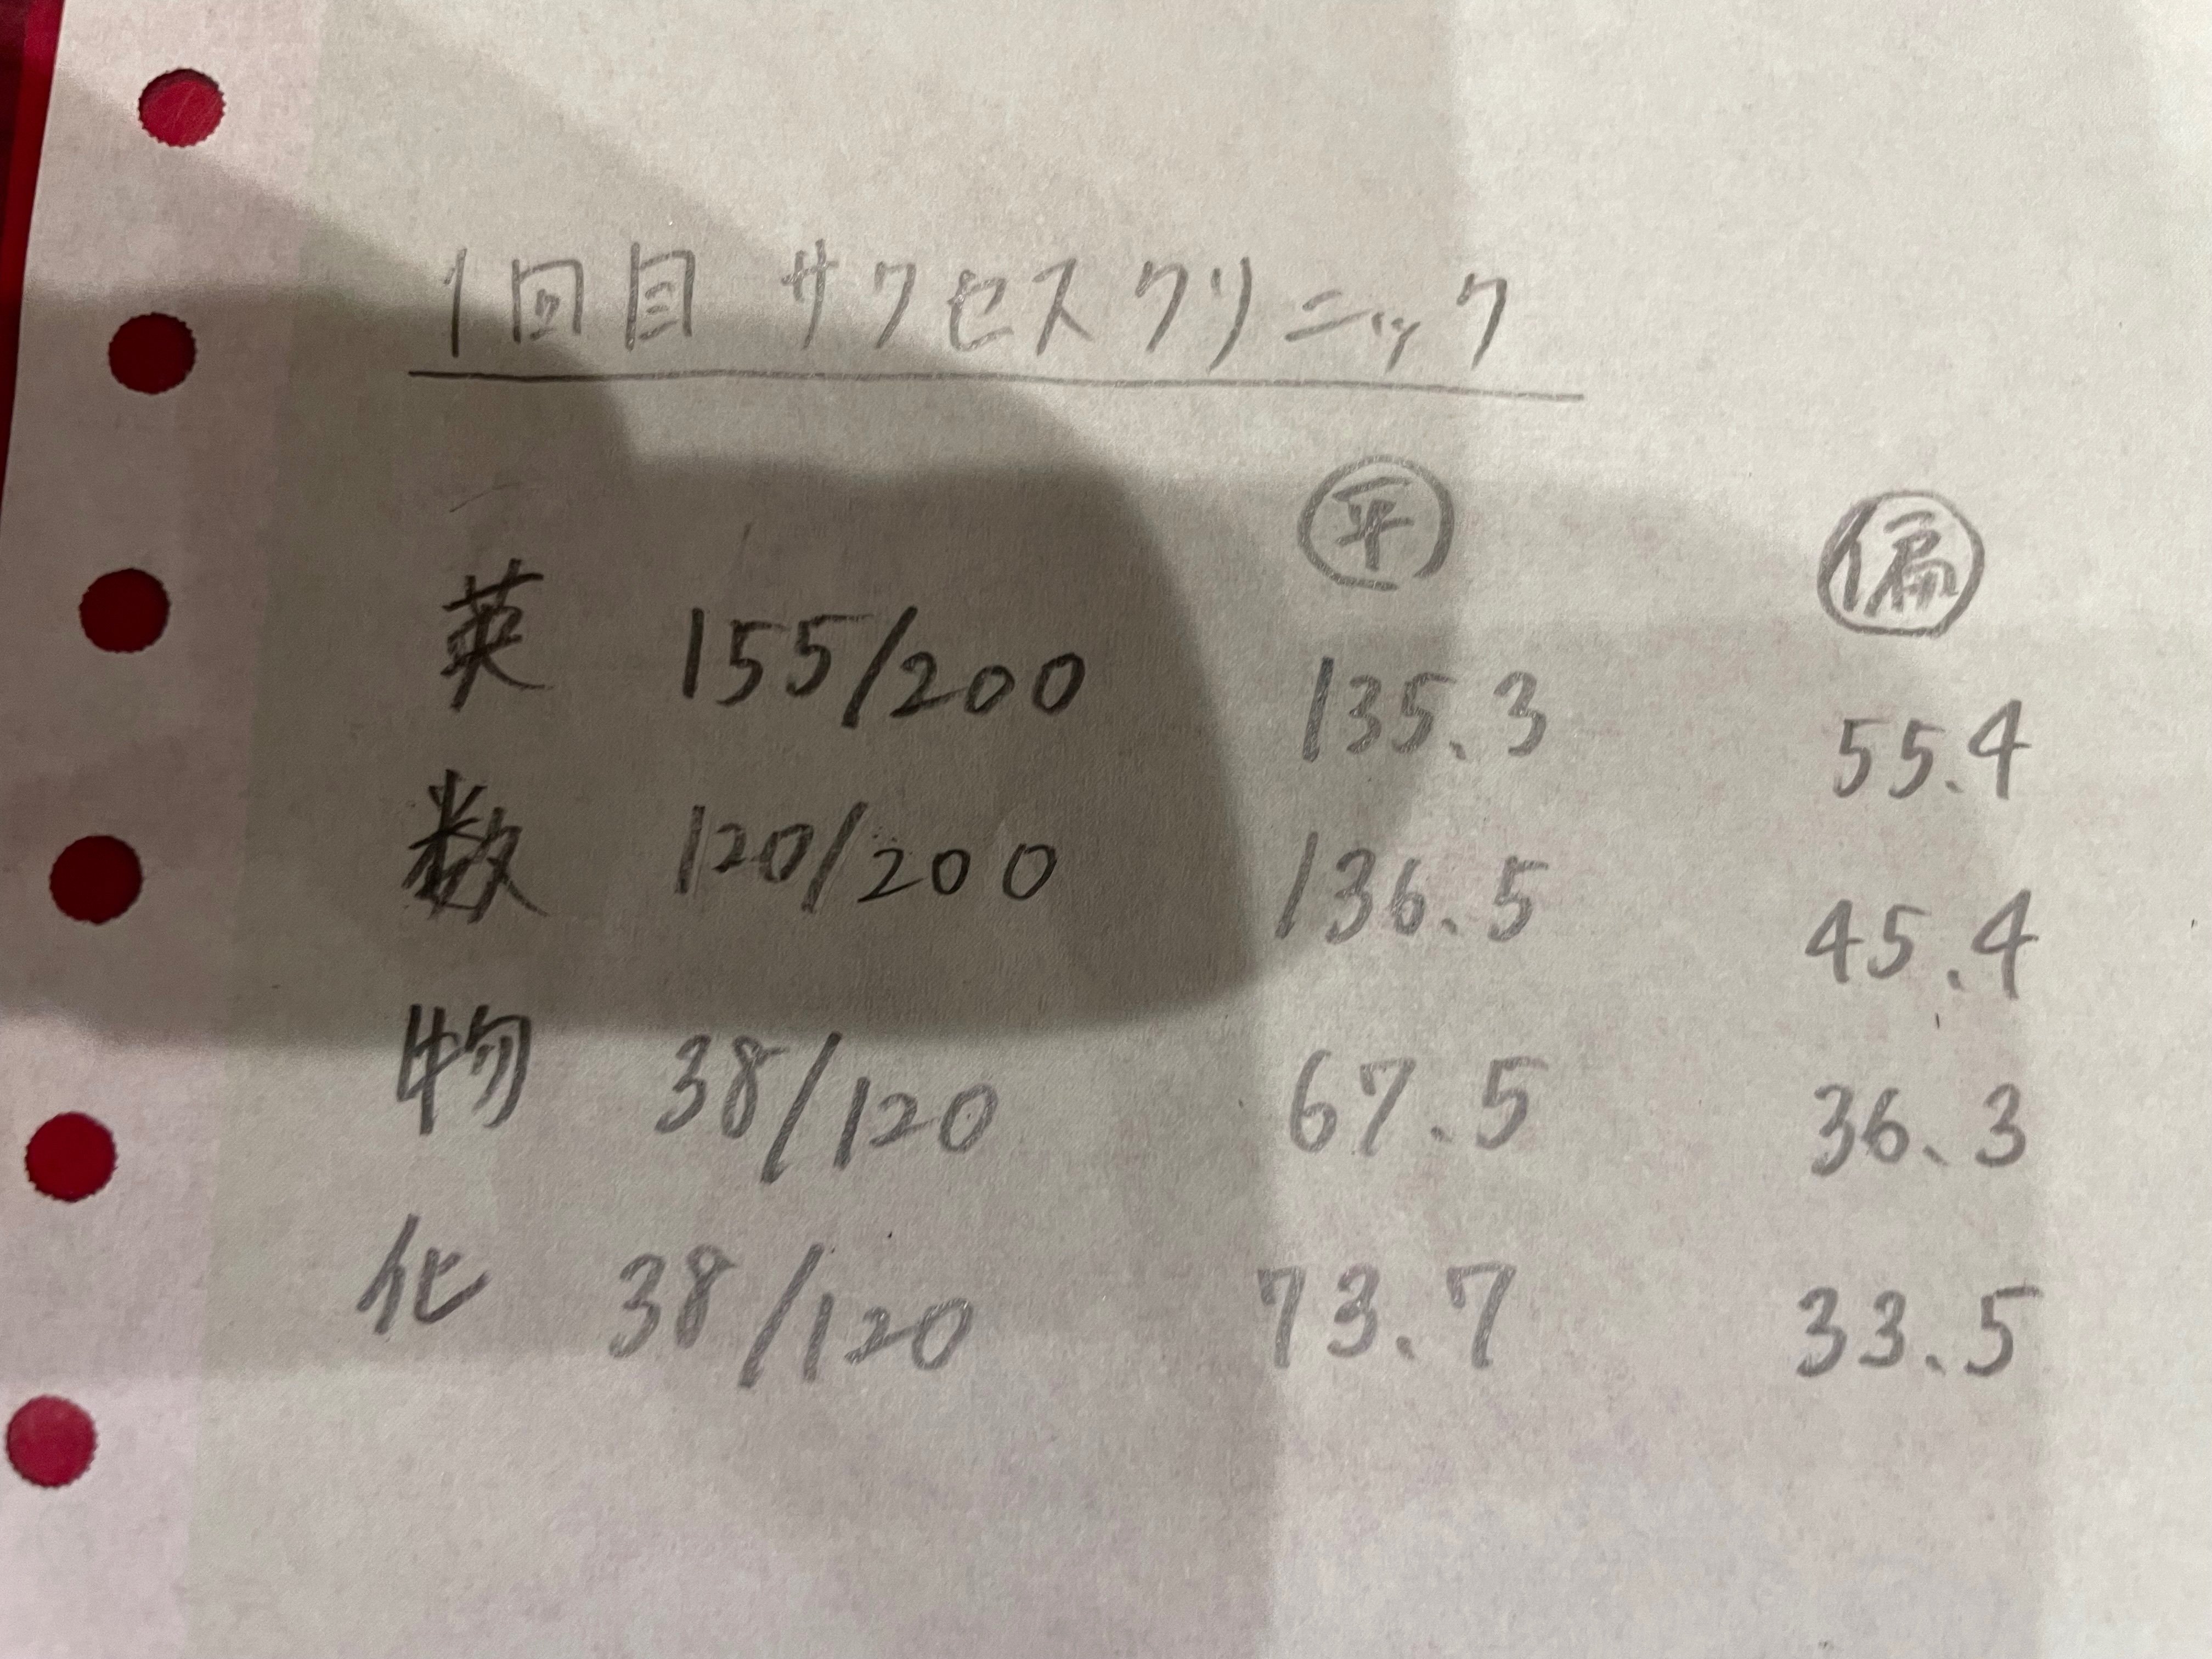 1回目 サクセスクリニック
平 偏
英 155/200 135.3 55.4
数 120/200 136.5 45.4
物 38/120 67.5 36.3
化 38/120 73.7 33.5